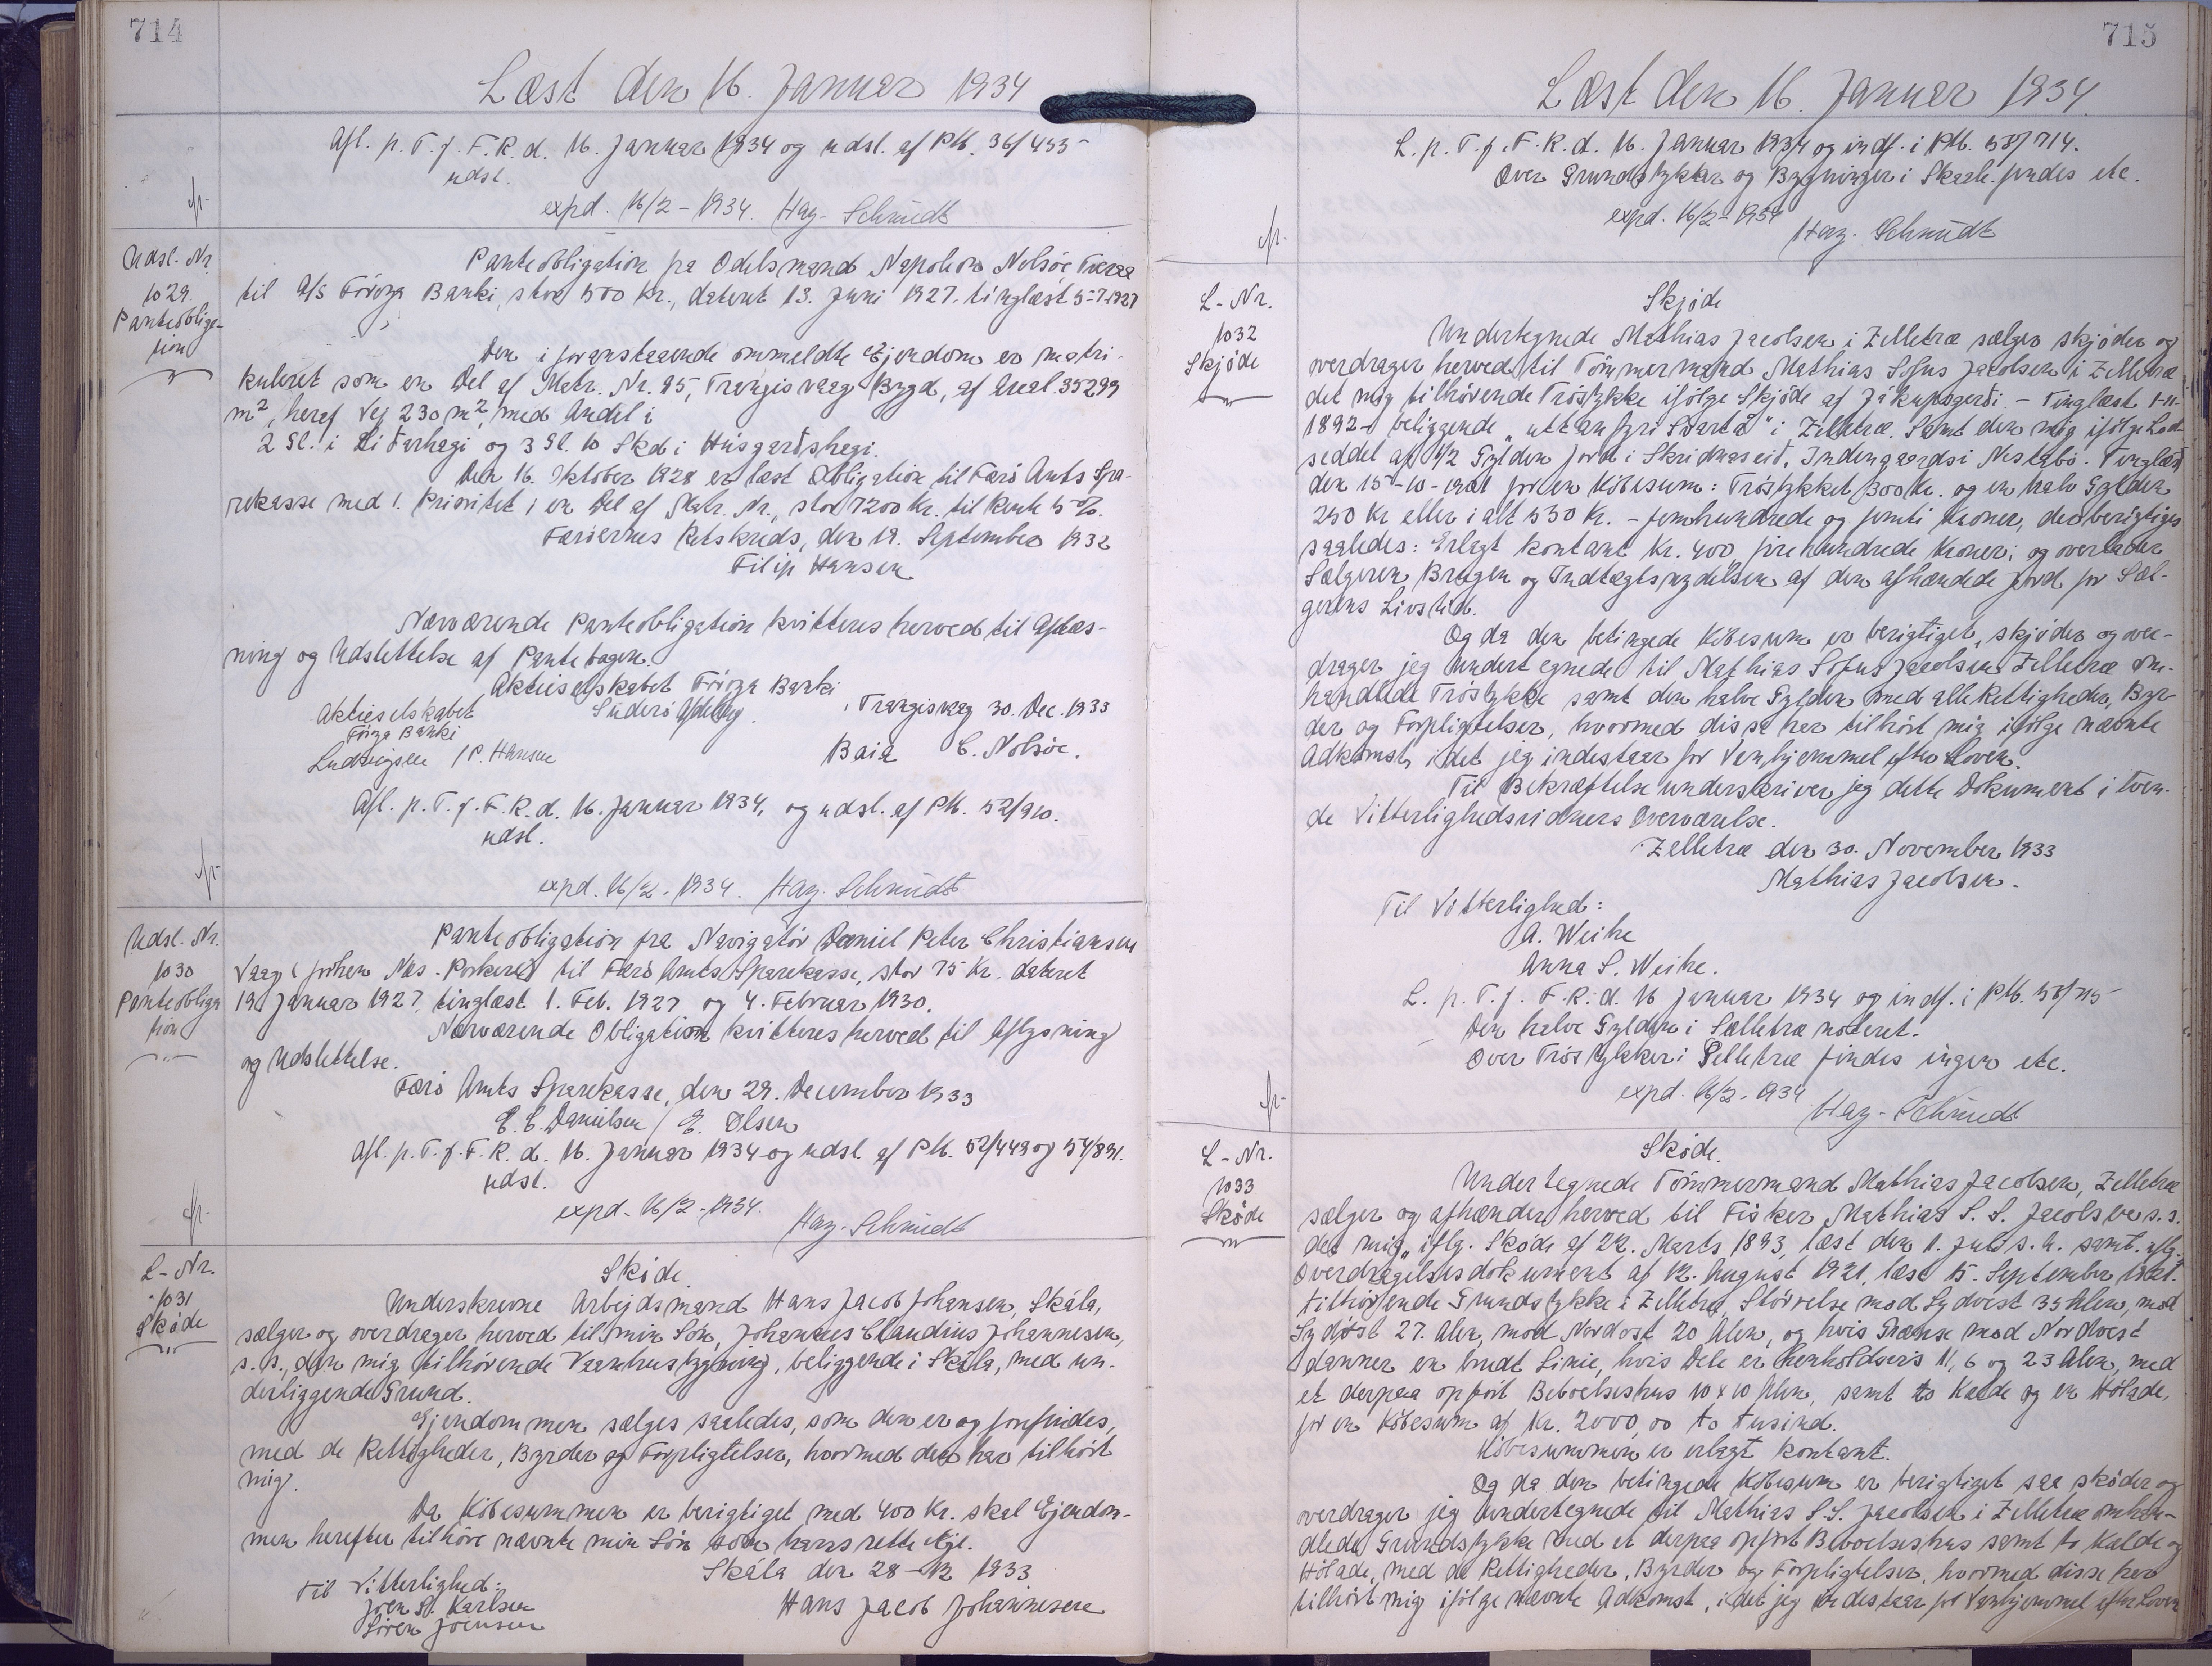 714
Læst den 16. Januar 1934
Afl. p. T. f. F. R. d. 16. Januar 1934 og udsl. af PM. 36/455
udsl.
expd. 16/2 - 1934. Hag. Schmidt
Udsl. Nr.
1029.
Panteobliga-
tion
Panteobligation fra Odelsmand Napoleon Nolsöe Tveraa
til A/S Föroya Banki, stor 500 Kr., dateret 13. Juni 1927. tinglæst 5-7-1927
Den i foranstaaende ommeldte Ejendom er matri-
kuleret som en Del af Matr. Nr. 25, Trangisvaag Bygd, af Areal 35299
m², heraf Vej 230 m², med Andel i
2 Sl. i Liðarhagi og 3 Sl. 10 Skd i Húsgarðshagi.
Den 16. Oktober 1928 er læst Obligation til Færö Amts Spa-
rekasse med 1. Prioritet i en Del af Matr. Nr., stor 7200 Kr. til Rente 5%.
Færöernes Retskreds, den 19. September 1932
Filip Hansen
Nærværende Panteobligation kvitteres herved til Aflæs-
ning og Udslettelse af Pantebogen.
Aktieselskabet Föroya Banki
Suderö Afdeling. Trangisvaag 30. Dec. 1933
Aktieselskabet
Föroya Banki
Ludvigsen / P. Hansen Baia C. Nolsöe.
Afl. p. T. f. F. R. d. 16. Januar 1934, og udsl. af PM. 52/920.
udsl.
expd. 16/2. 1934. Hag. Schmidt
Udsl. Nr.
1030
Panteobliga
tion
Panteobligation fra Navigatör Daniel Peter Christiansen
Vaag (förhen Næs - Porkeri) til Færö Amts Sparekasse, stor 75 Kr. dateret
19 Januar 1927, tinglæst 1. Feb. 1927 og 4. Februar 1930.
Nærværende Obligation kvitteres herved til Aflysning
og Udslettelse.
Færö Amts Sparekasse, den 29. December 1933
E. C. Danielsen / E. Olsen
Afl. p. T. f. F. R. d. 16. Januar 1934 og udsl. af PM. 52/449 og 54/891.
udsl.
expd. 16/2. 1934. Hag. Schmidt
L-Nr.
1031
Sköde
Sköde.
Underskrevne Arbejdsmand Hans Jacob Johansen, Skála,
sælger og overdrager herved til min Sön, Johannes Claudius Johannesen,
s. s., den mig tilhörende Vaanhusbygning, beliggende i Skála, med un-
derliggende Grund.
Ejendommen sælges saaledes, som den er og forefindes,
med de Rettigheder, Byrder og Forpligtelser, hvormed den har tilhört
mig.
Da Köbesummen er berigtiget med 400 Kr. skal Ejendom-
men herefter tilhöre nævnte min Sön som hans rette Eje.
Skála den 28-12 1933
Til Vitterlighed:
Joen H. Karlsen Hans Jacob Johannesen
Sören Joensen
715
Læst den 16. Januar 1934.
L. p. T. f. F. R. d. 16. Januar 1934 og indf. i PM. 58/714.
Over Grundstykker og Bygninger i Skaale findes etc.
expd. 16/2-1934
Hag. Schmidt
L-Nr.
1032
Skjöde
Skjöde
Undertegnede Mathias Jacobsen i Zelletræ sælger skjöder og
overdrager herved til Tömmermand Mathias Sofus Jacobsen i Zelletræ
det mig tilhörende Tröstykke ifölge Skjöde af Jákupsgerði - Tinglæst 1-11-
1892 - beliggende „uttanfyri Svartá" i Zelletræ. Samt den mig ifölge Lod
seddel af 1/2 Gylden Jord i Skridnaseið, Indengaards i Nestabö. Tinglæst
den 15-10-1901 for en Köbesum: Tröstykket 300 Kr. og en halv Gylden
250 Kr eller i alt 550 Kr. - femhundrede og femti Kroner, der berigtiges
saaledes: Erlagt kontant Kr. 400 firehundrede Kroner; og overlader
Sælgeren Brugen og Indtægtsnydelsen af den afhændede Jord for Sæl-
gerens Livstid.
Og da den betingede Köbesum er berigtiget, skjöder og over-
drager jeg undertegnede til Mathias Sofus Jacobsen Zelletræ om-
handlede Tröstykke samt den halve Gylden med alle Rettigheder, Byr-
der og Forpligtelser, hvormed disse har tilhört mig ifölge nævnte
Adkomst, idet jeg indestaar for Vanhjemmel efter Loven.
Til Bekræftelse underskriver jeg dette Dokument i tven-
de Vitterlighedsvidners Overværelse.
Zelletræ den 30. November 1933
Mathias Jacobsen.
Til Vitterlighed:
A. Weihe
Anna S. Weihe.
L. p. T. f. F. R. d. 16 Januar 1934 og indf. i PM. 58/715
Den halve Gylden i Selletræ noteret.
Over Tröstykker i Selletræ findes ingen etc.
expd. 16/2. 1934
Hag. Schmidt
L-Nr.
1033
Sköde
Sköde.
Undertegnede Tömmermand Mathias Jacobsen, Zelletræ
sælger og afhænder herved til Fisker Mathias S. S. Jacobsen s. s.
det mig, iflg. Sköde af 22. Marts 1893, læst den 1. Juli s. A. samt iflg.
Overdragelsesdokument af 12. August 1921, læst 15. September 1921.
tilhörende Grundstykke i Zelletræ, Störrelse mod Sydvest 35 Alen, mod
Sydöst 27. Alen, mod Nordost 20 Alen, og hvis Grænse mod Nordvest
danner en brudt Linie, hvis Dele er henholdsvis 11, 6 og 23 Alen, med
et derpaa opfört Beboelseshus 10 x 10 Alen, samt to Kalde og en Hölade,
for en Köbesum af Kr. 2000,00 to tusind.
Köbesummen er erlagt kontant.
Og da den betingede Köbesum er berigtiget saa sköder og
overdrager jeg Undertegnede til Mathias S.S. Jacobsen i Zelletræ omhan-
dlede Grundstykke med et derpaa opfört Beboelseshus samt to Kalde og
Hölade, med de Rettigheder, Byrder og Forpligtelser, hvormed disse har
tilhört mig ifölge nævnte Adkomst, idet jeg indestaar for Vanhjemmel efter Loven